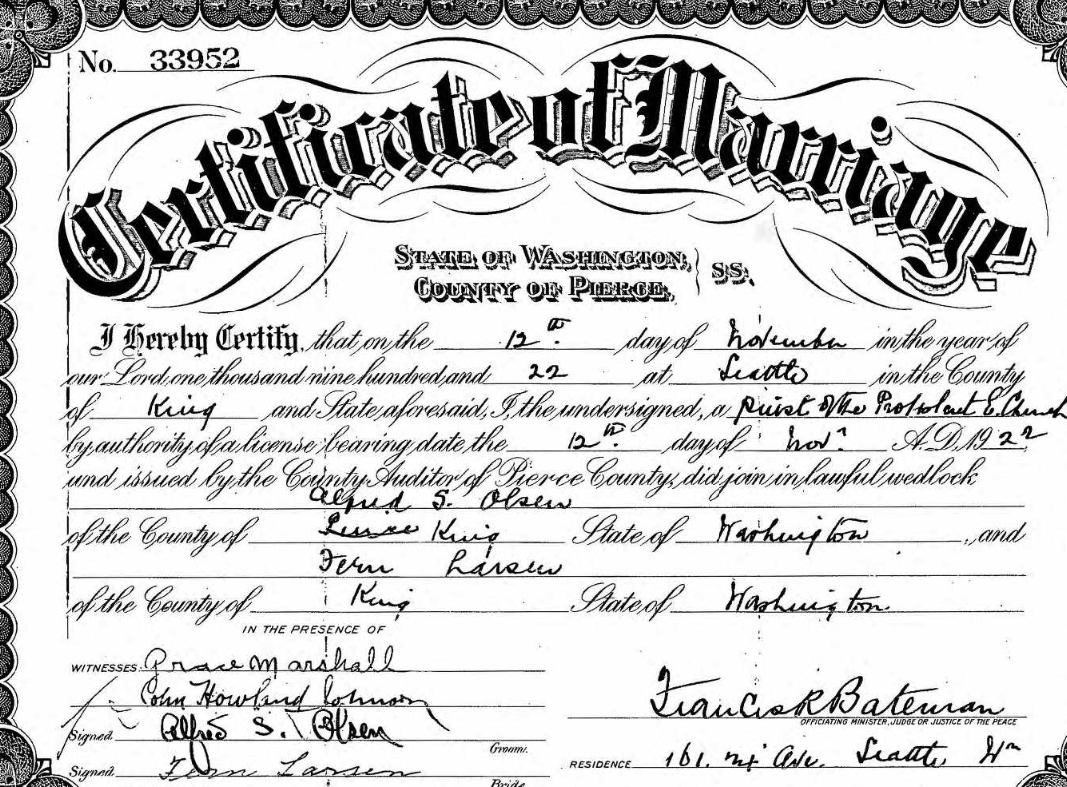 No. 33952
Certificate of Marriage
STATE OF WASHINGTON, } SS.
COUNTY OF PIERCE,
I Hereby Certify, that on the 12th day of November in the year of
our Lord, one thousand nine hundred and 22 at Seattle in the County
of King and State aforesaid, I, the undersigned, a priest of the Protestant E. Church
by authority of a license bearing date the 12th day of Nov. A.D. 1922
and issued by the County Auditor of Pierce County, did join in lawful wedlock
Alfred S. Olsen
of the County of Pierce King State of Washington, and
Fern Larsen
of the County of King State of Washington.
IN THE PRESENCE OF
WITNESSES: Grace Marshall
John Howland Johnson
Francis R Bateman
OFFICIATING MINISTER, JUDGE OR JUSTICE OF THE PEACE
Signed Alfred S. Olsen
Groom.
RESIDENCE Ave. Seattle, Wn
Signed Fern Larsen
Bride